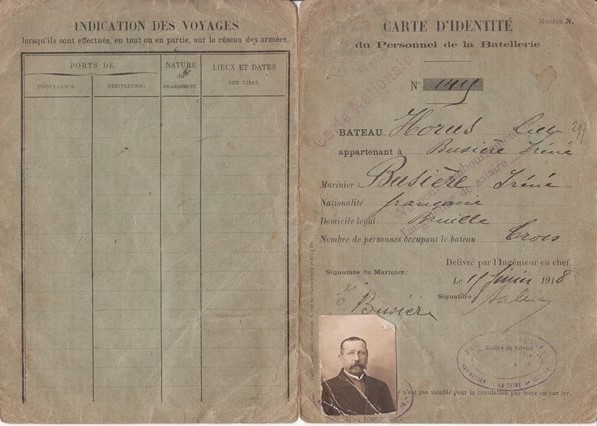 INDICATION DES VOYAGES
lorsqu'ils sont effectués, en tout ou en partie, sur le réseau des armées.
PORTS DE
PROVENANCE.
DESTINATION.
NATURE
du
CHARGEMENT
LIEUX ET DATES
DES VISAS.
MODÈLE N.
CARTE D'IDENTITÉ
du Personnel de la Batellerie
N°
Carte Nationale
BATEAU Horus
appartenant à Busière Iréné
Marinier Busière Iréné
Nationalité française
Domicile légal Bruille
Nombre de personnes occupant le bateau Trois
Délivré par l'Ingénieur en chef.
Signature du Marinier.
Le 1918
Signature
Busière
n'est pas valable pour la circulation par terre ou par fer.